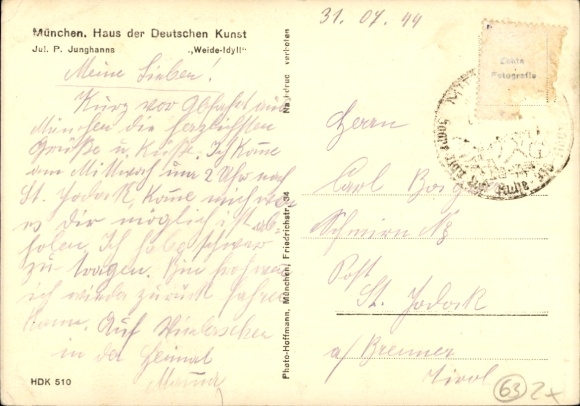 München, Haus der Deutschen Kunst
Jul. P. Junghanns „Weide-Idyll"
Meine Lieben!
Kurz vor Abfahrt aus
München die herzlichsten
Grüße u. Küße. Ich kome
am Mittwoch um 2 Uhr nach
St. Jodock, kome mich
es dir möglich ist ab-
holen. Ich habe schwer
zu tragen. Bin froh wen
ich wieder zurück fahren
kann. Auf Wiedersehen
in der Heimat
Mama
HDK 510
Nachdruck verboten
Photo-Hoffmann, München, Friedrichstr. 34
31. 07. 44
Cante
Fotografie
Herrn
Carl
Schmirn Nr
Post
St. Jodock
a/Brenner
Tirol
63 2x